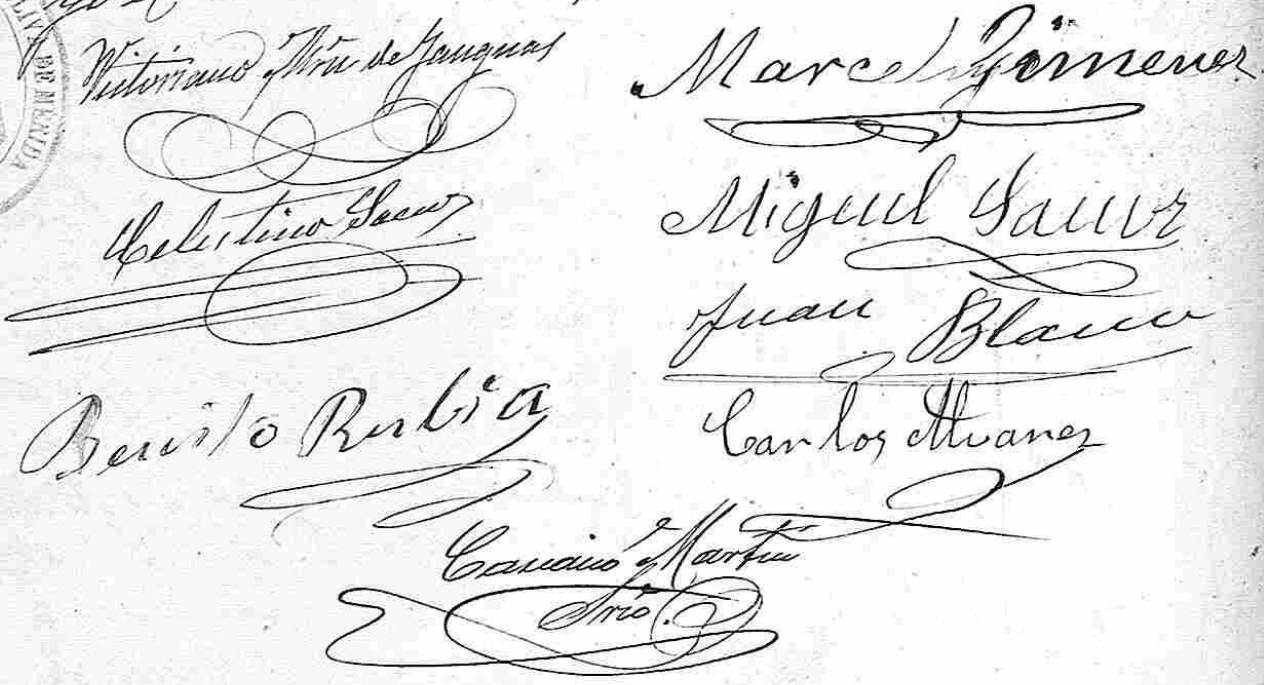 Victoriano Mrn de Yanguas
Celestino Saenz
Benito Rubia
Marcel Gimenez
Miguel Saenz
Juan Blanco
Carlos Alvarez
Casiano Martin
Srio.
DE MENUDA